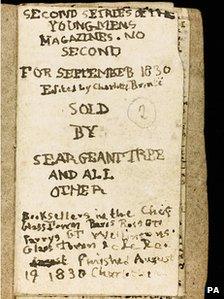 SECOND SERIES OF THE
YOUNG MENS
MAGAZINES. NO
SECOND
FOR SEPTEMBER 1830
Edited by Charlotte Brontë
SOLD
2
BY
SEARGEANT TREE
AND ALL
OTHER
Booksellers in the Chief
Glass Town Paris Ross's GT
Parrys GT Wellingtons
Glass Town &
Finished August
19 1830 Charlotte
PA